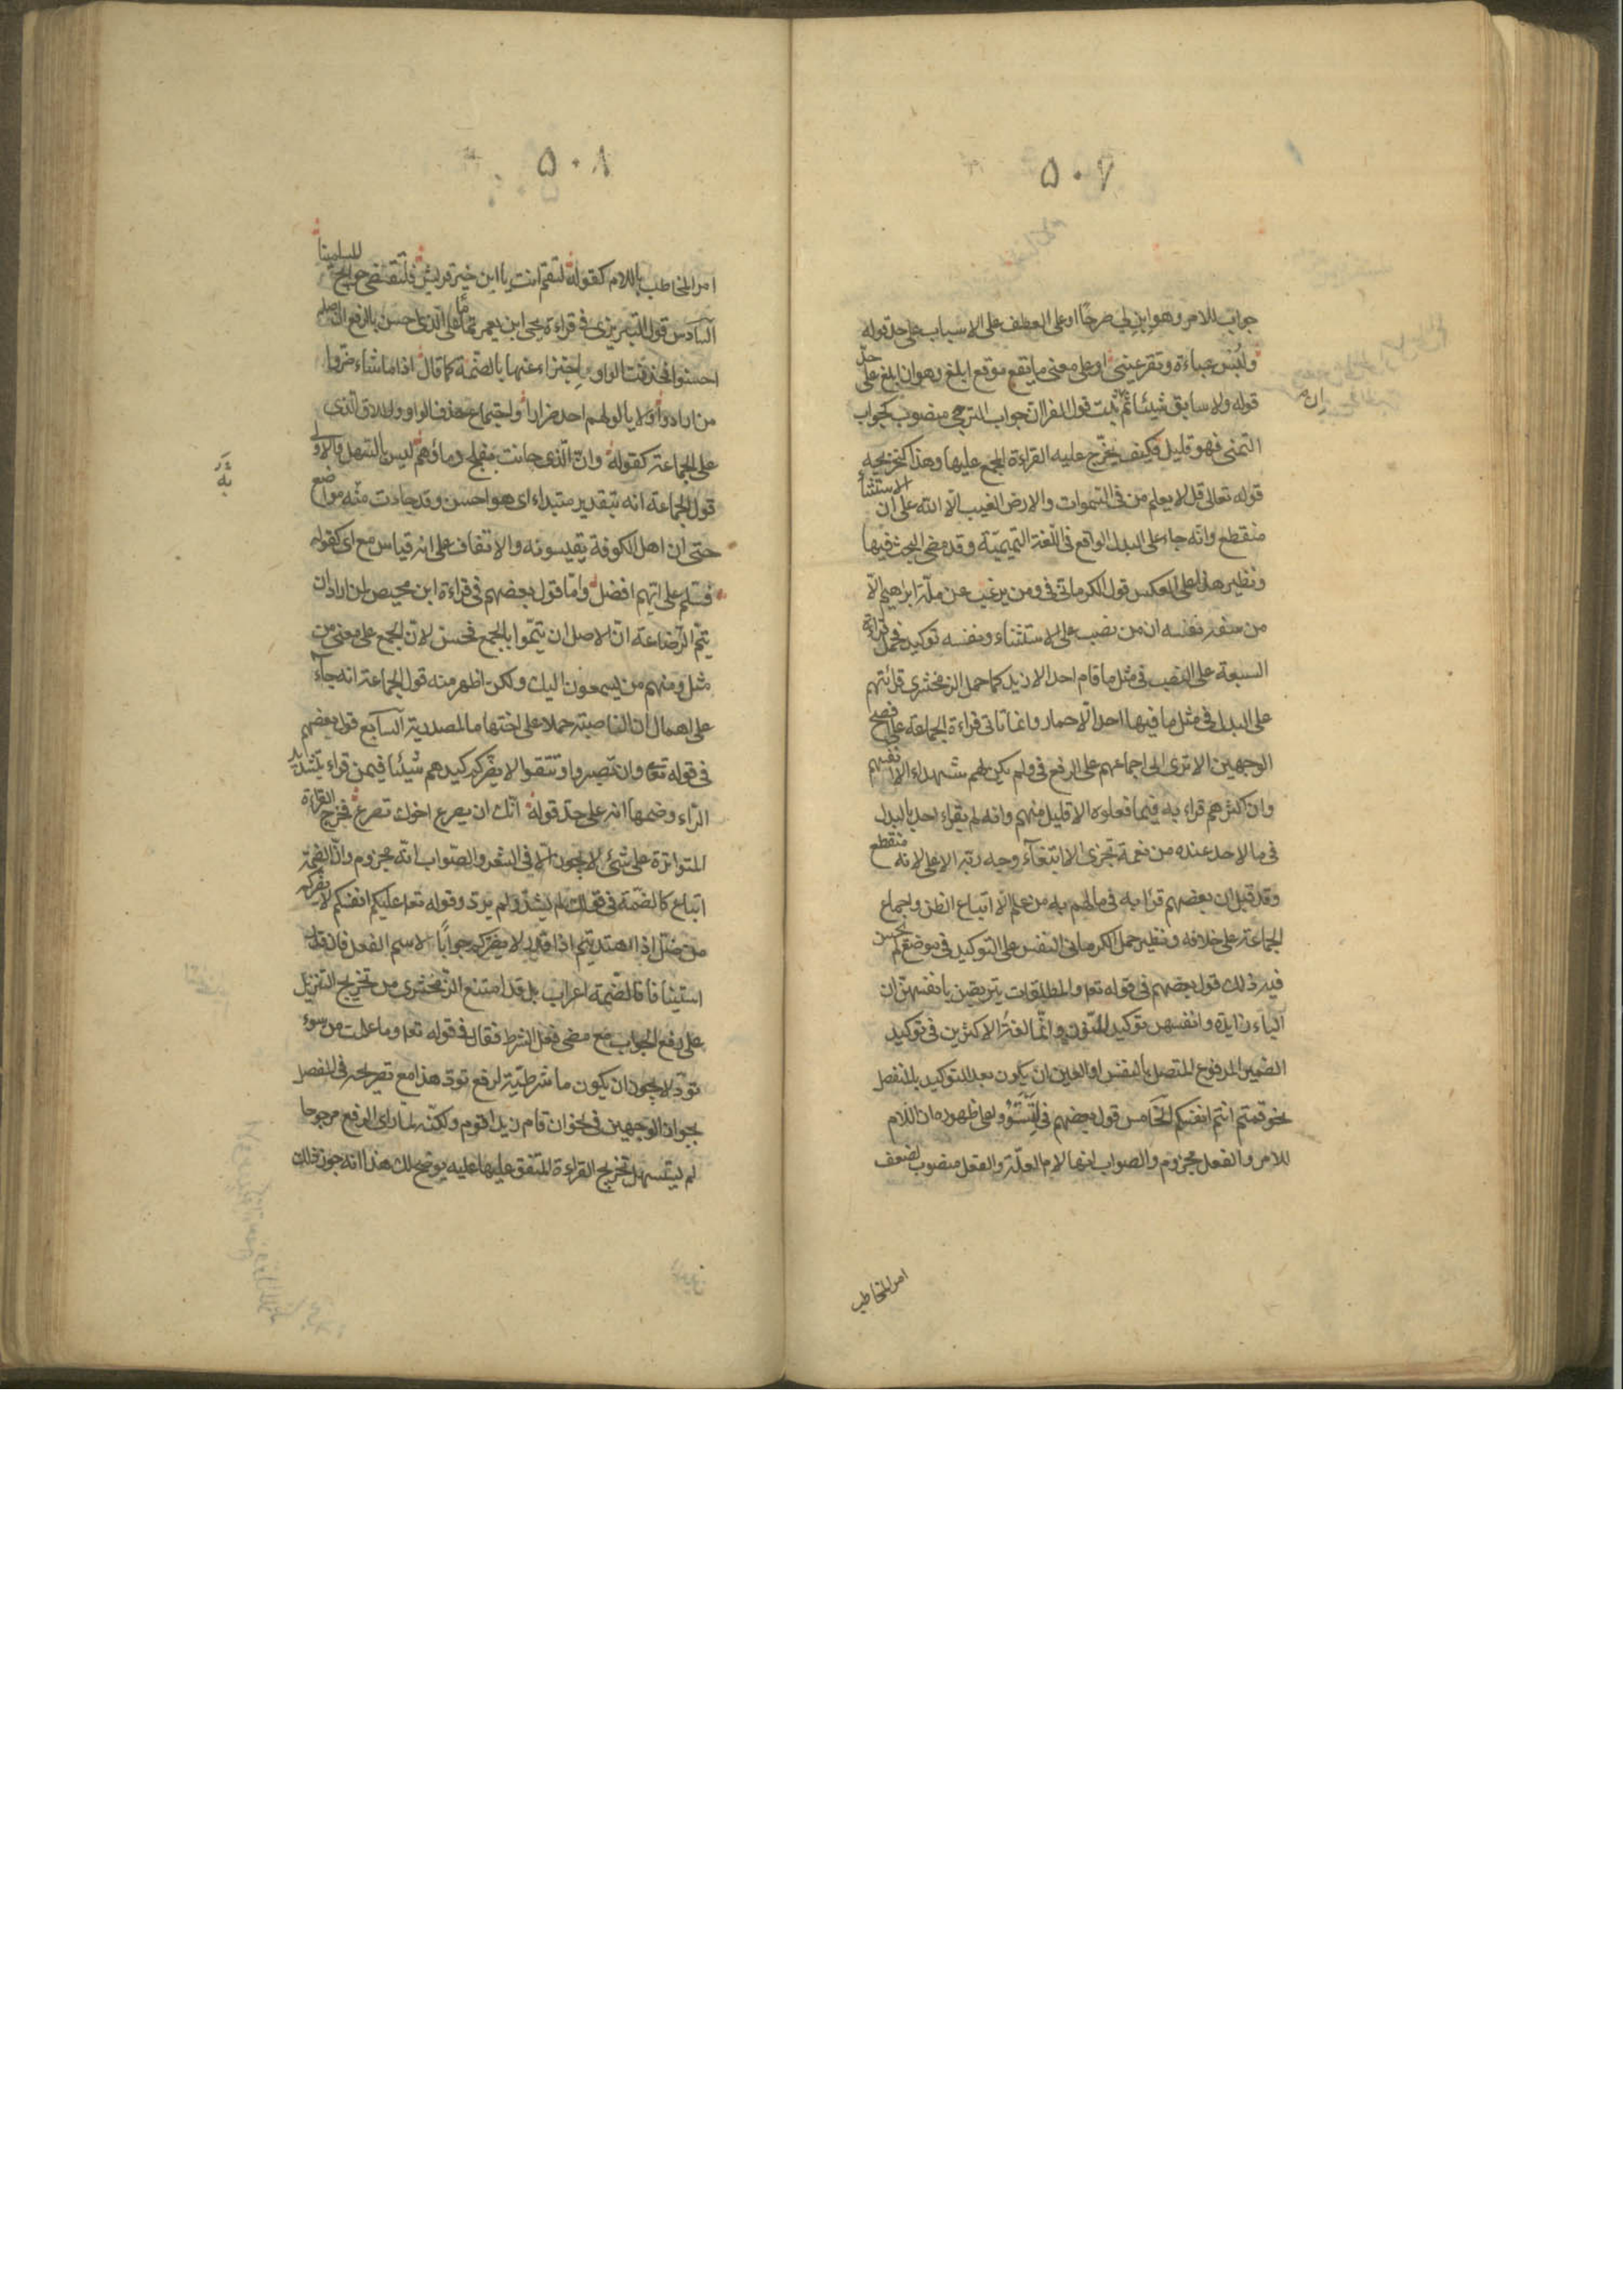 ۵۰۷
جواب للامر وهو ابن لي صرحًا او على العطف على الاسباب على حد قوله
ولبس عباءة وتقر عيني او على معنى ما يقع موقع ابلغ وهو ان ابلغ على حدّ
قوله ولا سابق شيئًا ثم ثبت قول الفراء ان جواب الترجي منصوب كجواب
التمنى فهو قليل فكيف يخرّج عليه القراءة المجمع عليها وهذا كتخريجه
قوله تعالى قل لا يعلم من في السموات والارض الغيب الّا الله على ان الاستثناء
منقطع وانّه جاء على البدل الواقع في اللّغة التميميّة وقد مضى البحث فيها
ونظير هذا على العكس قول الكرماني في ومن يرغب عن ملّة ابراهيم الّا
من سفه نفسه ان من نصب على الاستثناء ونفسه توكيد فحمل قراءة
السبعة على النصب في مثل ما قام احد الا زيد كما حمل الزمخشري قرائتهم
على البدل في مثل ما فيها احد الّا حمار وانما تاتى قراءة الجماعة على افصح
الوجهين الا ترى الى اجماعهم على الرفع في ولم يكن لهم شهداء الا انفسهم
وان اكثرهم قراء به فيما فعلوه الا قليل منهم وانه لم يقراء احد بالبدل
في ما لاحد عنده من نعمة تجزى الا ابتغآء وجه ربّه الاعلى لانه منقطع
وقد قيل ان بعضهم قرا به في ما لهم به من علم الّا اتباع الظن واجماع
الجماعة على خلافه ونظير حمل الكرماني النفس على التوكيد في موضع لم يحسن
فيه ذلك قول بعضهم في قوله تعا والمطلقات يتربصن بانفسهنّ ان
الباء زايدة وانفسهن توكيد للنون وانّما لغة الاكثرين في توكيد
الضمير المرفوع المتصل بالنفس او العين ان يكون بعد التوكيد بالمنفصل
نحو قمتم انتم انفسكم الخامس قول بعضهم في لتستووا على ظهوره ان اللام
للامر والفعل مجزوم والصواب انها لام العلّة والفعل منصوب لضعف
امر المخاطب
۵۰۸
امر المخاطب باللام كقوله لتقم انت يا ابن خير قريش فلتقضى حوائج المسلمينا
السّادس قول التبريزى في قراءة يحيى ابن يعمر تماما على الذى احسن بالرفع ان اصله
احسنوا فحذفت الواو اجتزاء عنها بالضمّة كما قال اذا ما شاء ضروا
من ارادوا ولا يالوا لهم احد ضرارا واجتماع حذف الواو واطلاق الذى
على الجماعة كقوله وان الّذى حانت بفلج دماؤهم ليس بالسهل والاولى
قول الجماعة انه بتقدير مبتداء اى هو احسن وقد جاءت منه مواضع
حتى ان اهل الكوفة يقيسونه والاتفاق على انه قياس مع اى كقوله
فسلم على ايّهم افضل وامّا قول بعضهم في قراءة ابن محيصن لمن اراد ان
يتمّ الرّضاعة انّ الاصل ان يتمّوا بالجمع فحسن لانّ الجمع على معنى من
مثل ومنهم من يسمعون اليك ولكن اظهر منه قول الجماعة انه جآء
على اهمال ان الناصبة حملا على اختها ما المصدرية السّابع قول بعضهم
في قوله تعا وان تصبروا وتتقوا لا يضركم كيدهم شيئًا فيمن قراء بتشديد
الرّاء وضمها انه على حدّ قوله انّك ان يصرع اخوك تصرع فخرج القراءة
المتواترة على شئ لا يجوز الّا في الشعر والصّواب انّه مجزوم وانّ الضمّة
اتباع كالضمّة في قولك لم يشدّ ولم يردّ وقوله تعا عليكم انفسكم لا يضركم
من ضلّ اذا اهتديتم اذا قدر لا يضركم جوابًا لاسم الفعل فان قدر
استينافا فالضمّة اعراب بل قد امتنع الزمخشري من تخريج التنزيل
على رفع الجواب مع مضى فعل الشرط فقال في قوله تعا وما عملت من سوء
تودّ لا يجوز ان يكون ما شرطيّة لرفع تودّ هذا مع تصريحه في المفصل
بجواز الوجهين في نحو ان قام زيد اقوم ولكنّه لما راى الرفع مرجوحا
لم يستسهل تخريج القراءة المتفق عليها عليه يوضح لك هذا انه جوز ذلك